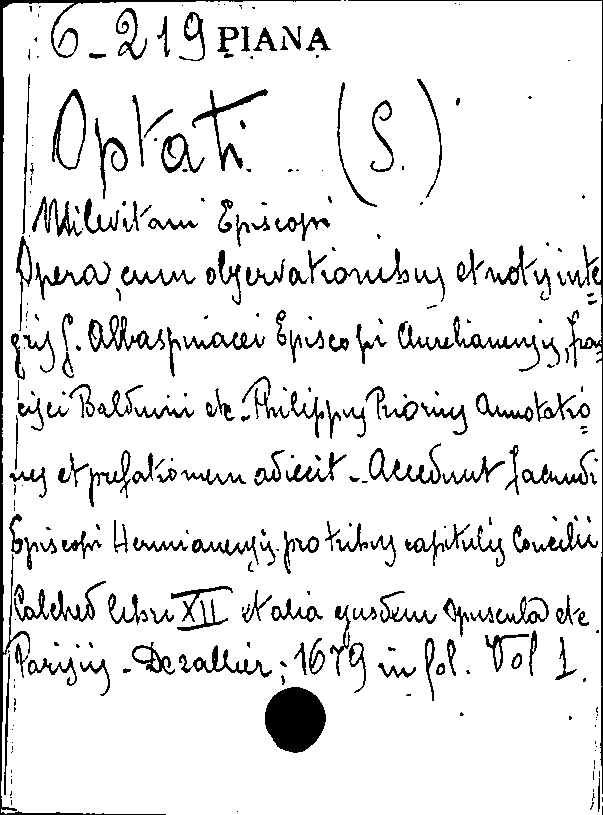 6-219 PIANA
Optati (S.)
Milevitani Episcopi
Opera, cum observationibus et notis inte=
gris G. Albaspinaei Episcopi Aurelianensis, fran=
cisci Balduini etc - Philippus Priorius Annotatio=
nes et prefationem adiecit - Accedunt facundi
Episcopi Hermianensis pro tribus capitulis Concilii
Calched libri XII et alia ejusdem Opuscula etc
Parisiis - Dezallier; 1679 in fol. Vol 1.